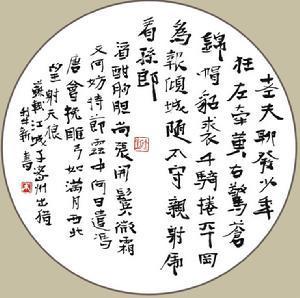 老夫聊發少年
狂左牽黃右擎蒼
錦帽貂裘千騎捲平岡
為報傾城隨太守親射虎
看孫郎
酒酣胸膽尚張開鬢微霜
又何妨持節雲中何日遣馮
唐會挽雕弓如滿月西北
望射天狼
蘇軾江城子密州出獵
新書